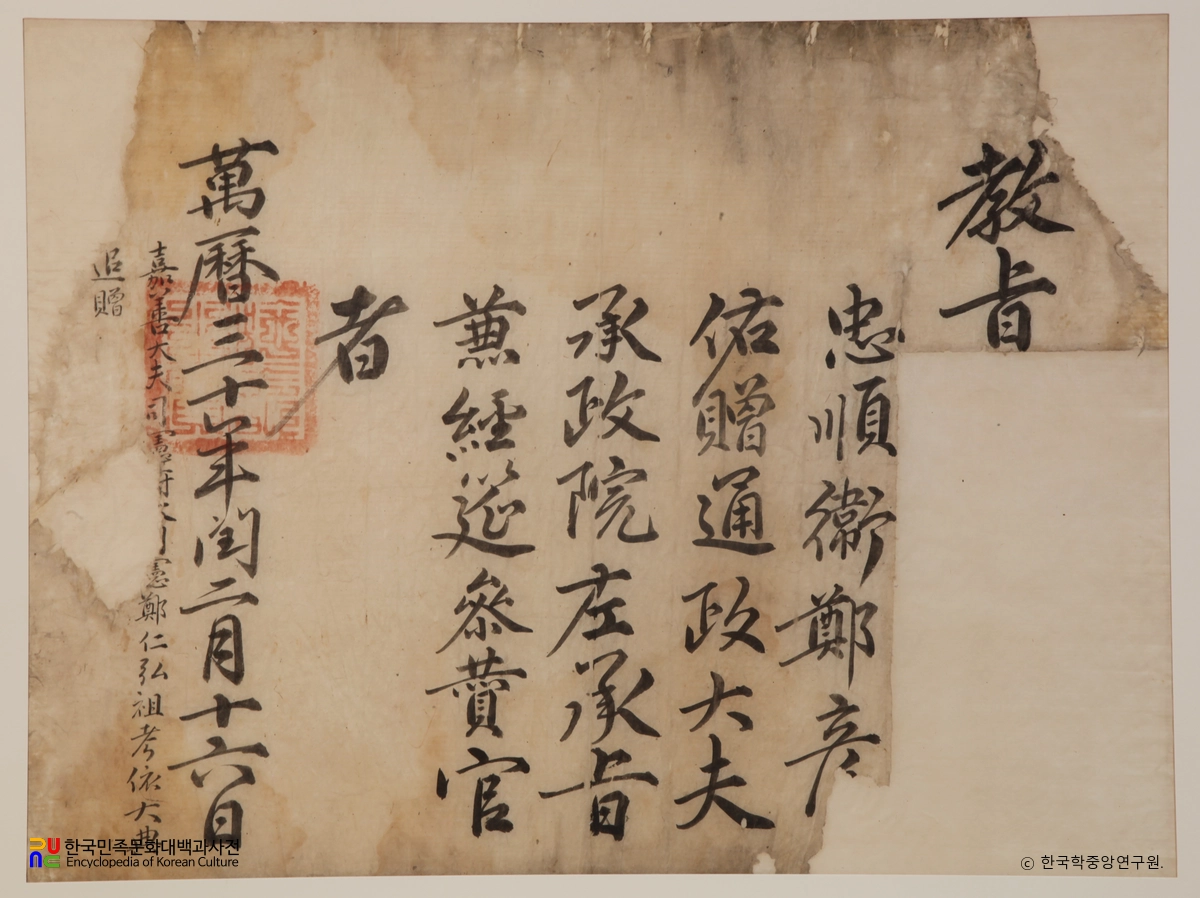 教旨
忠順衛鄭彦
佑贈通政大夫
承政院左承旨
兼經筵叅賛官
者
萬曆三十年閏二月十六日
嘉善大夫司憲府大司憲鄭仁弘祖考依大典
追贈
한국민족문화대백과사전
Encyclopedia of Korean Culture
ⓒ 한국학중앙연구원.